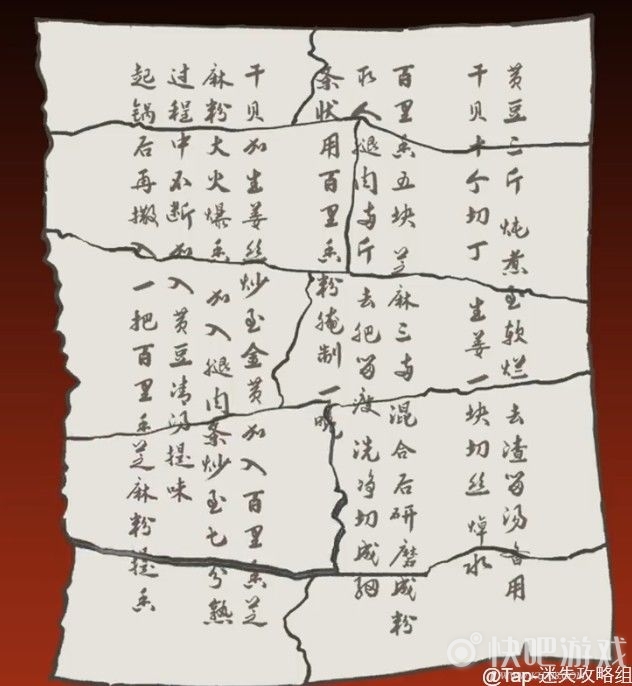 黄豆三斤 炖煮至软烂 去渣留汤备用
干贝十个切丁 生姜一块切丝焯水
百里香五块 芝麻三两 混合后研磨成粉
取人腿肉两斤 去肥留瘦 洗净切成细
条状用百里香粉腌制一晚
干贝加生姜丝炒至金黄加入百里香芝
麻粉大火爆香 加入腿肉条炒至七分熟
过程中不断加入黄豆清汤提味
起锅后再撒入一把百里香芝麻粉提香
快吧游戏
@Tap-迷失攻略组